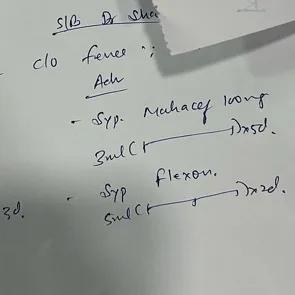 S/B Dr Sha
c/o fever
Adv
- Syp. Mahacef 100mg
3ml (+———)x5d.
- Syp Flexon.
3d.
5ml (+———+———)x2d.